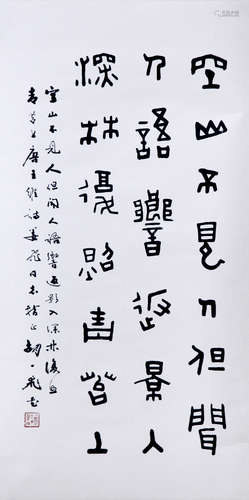 空山不見人但聞
人語響返景人
深林復照青苔上
空山不見人但聞人語響返影入深林復照
青苔上 唐王維詩